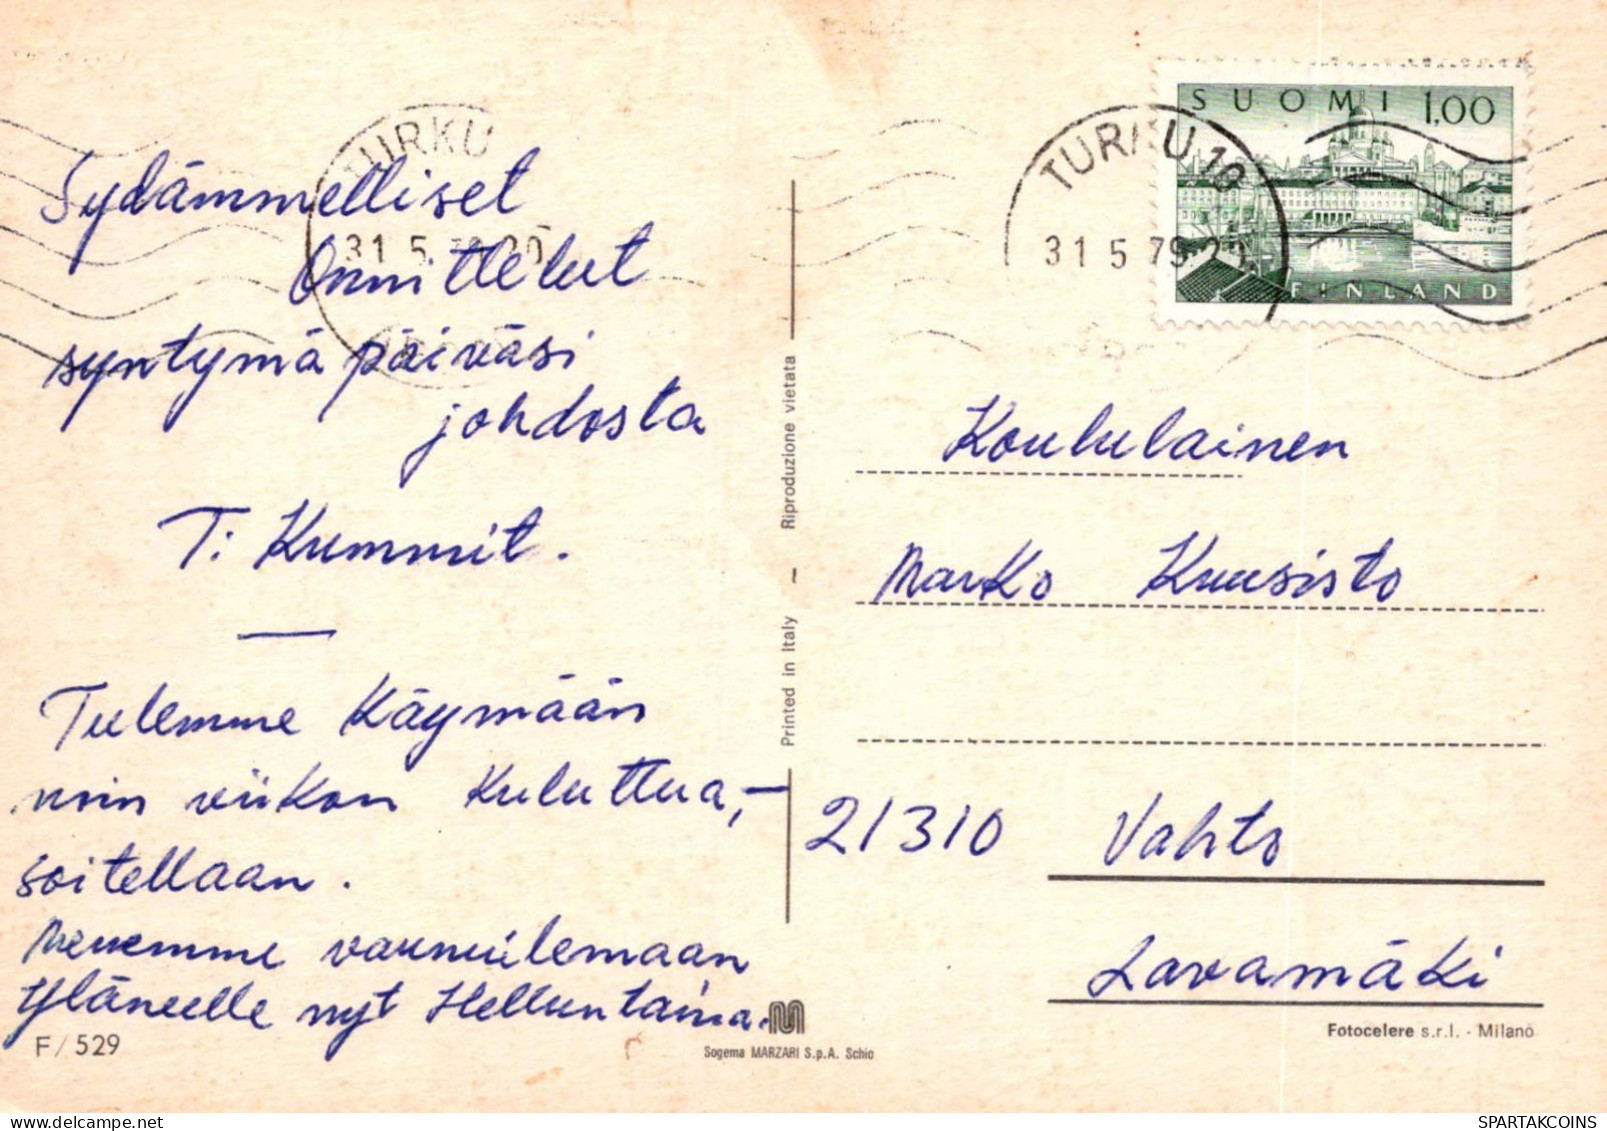 Sydämmelliset
Onnittelut
syntymäpäiväsi
johdosta
T: Kummit.
Tulemme Käymään
noin viikon Kuluttua,-
soitellaan.
Menemme vaunuilemaan
Yläneelle nyt Helluntaina.
F/529
TURKU
31.5.79.20
Riproduzione vietata
Printed in Italy –
Sogema MARZARI S.p.A. Schio
TURKU 10
31 5 79 20
SUOMI 1,00
FINLAND
Koululainen
Marko Kuusisto
21310 Vahto
Lavamäki
Fotocelere s.r.l. - Milano
SPARTAKCOINS